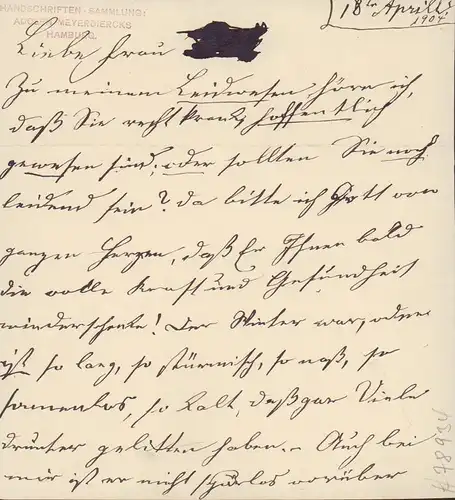 HANDSCHRIFTEN-SAMMLUNG:
ADOLF MEYERDIERCKS
HAMBURG.
18te April
1904
Liebe Frau
Zu meinem Leidwesen höre ich,
daß Sie recht krank, hoffentlich
gewesen sind, oder sollten Sie noch
leidend sein? da bitte ich Gott von
ganzem Herzen, daß Er Ihnen bald
die volle Kraft und Gesundheit
wiederschenke! Der Winter war, oder
ist so lang, so stürmisch, so naß, so
sonnenlos, so kalt, daß gar Viele
drunter gelitten haben. – Auch bei
mir ist er nicht spurlos vorüber